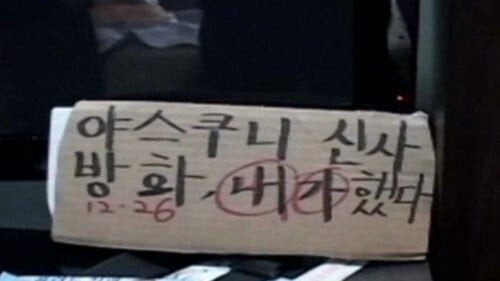 야스쿠니 신사
방화, 내가했다
12.26